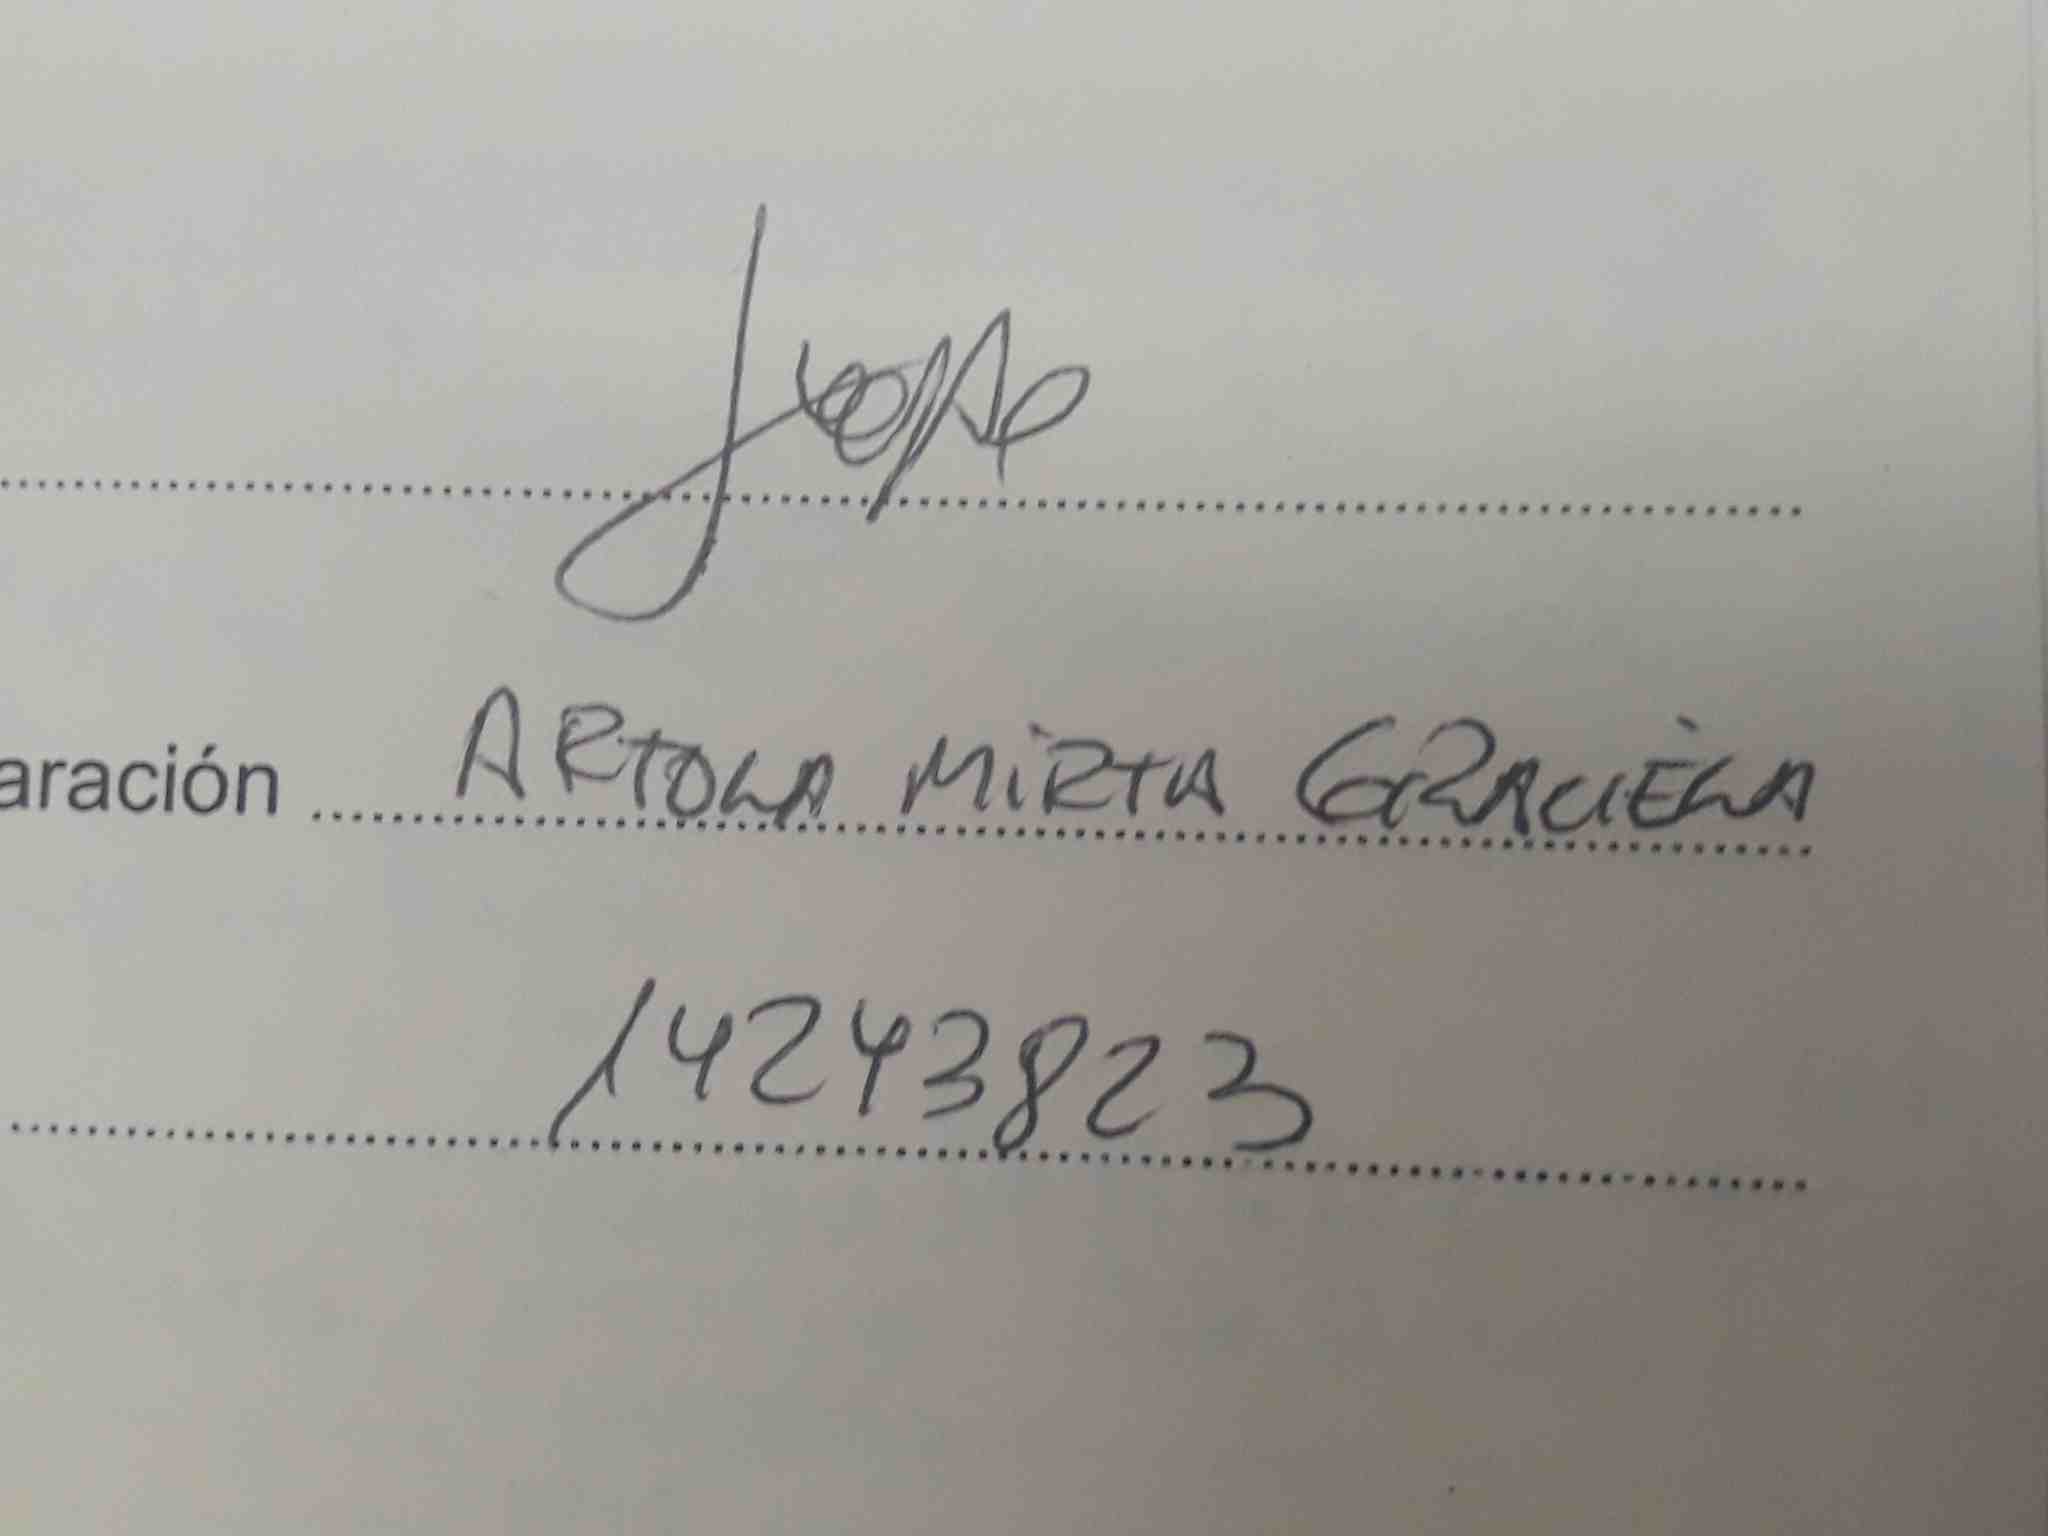 aración ARTOLA MIRTA GRACIELA
14243823